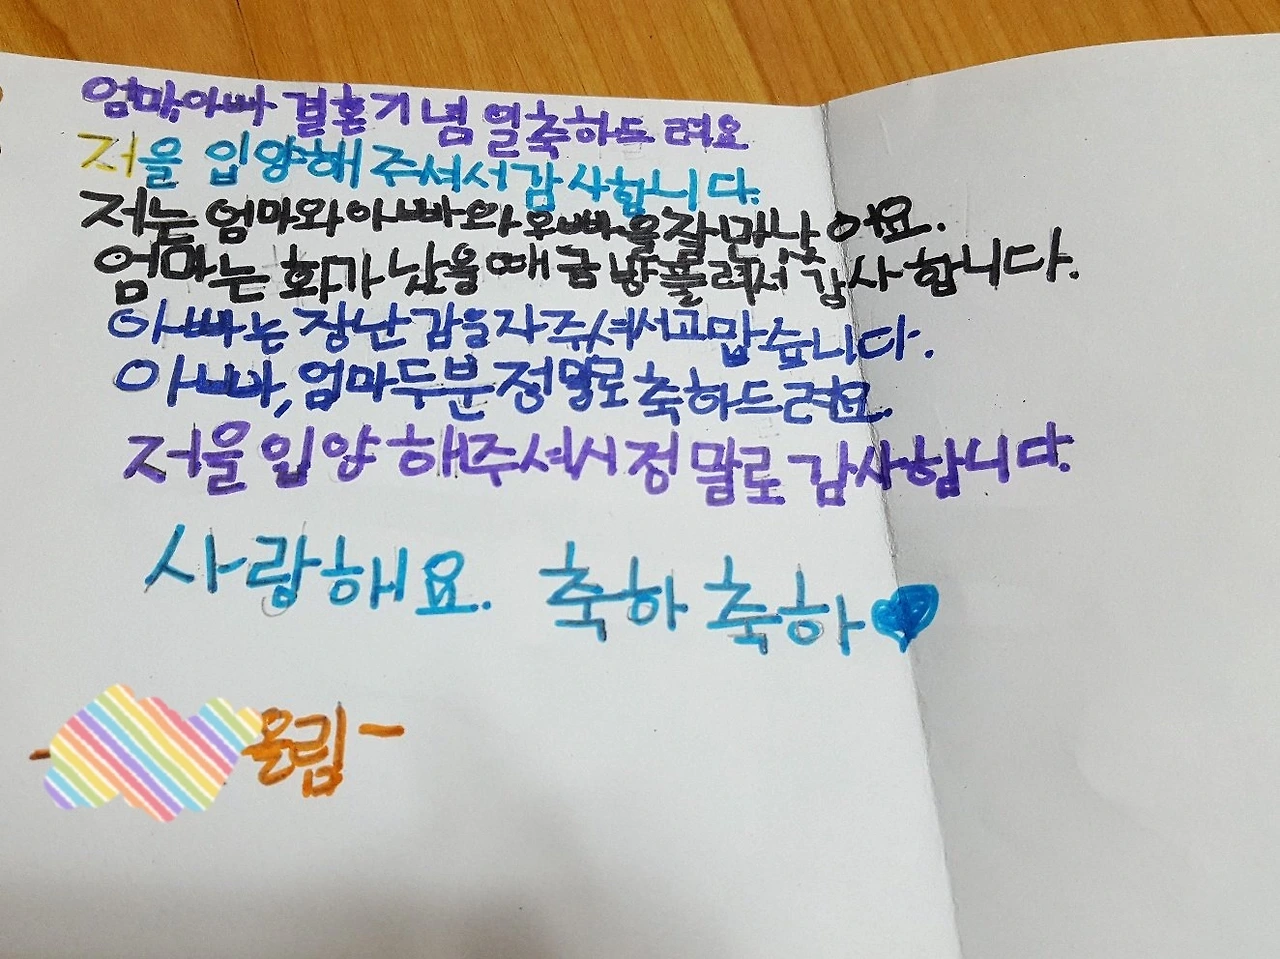 엄마,아빠 결혼기념일축하드려요
저을 입양해 주셔서감사합니다.
저는 엄마와 아빠와 오빠을 잘만났어요.
엄마는 화가 났을때 금방풀려서 감사합니다.
아빠는 장난감을자주셔서고맙습니다.
아빠,엄마두분정말로 축하드려요.
저을입양 해주셔서정말로 감사합니다.
사랑해요. 축하 축하♥
- 올림 -